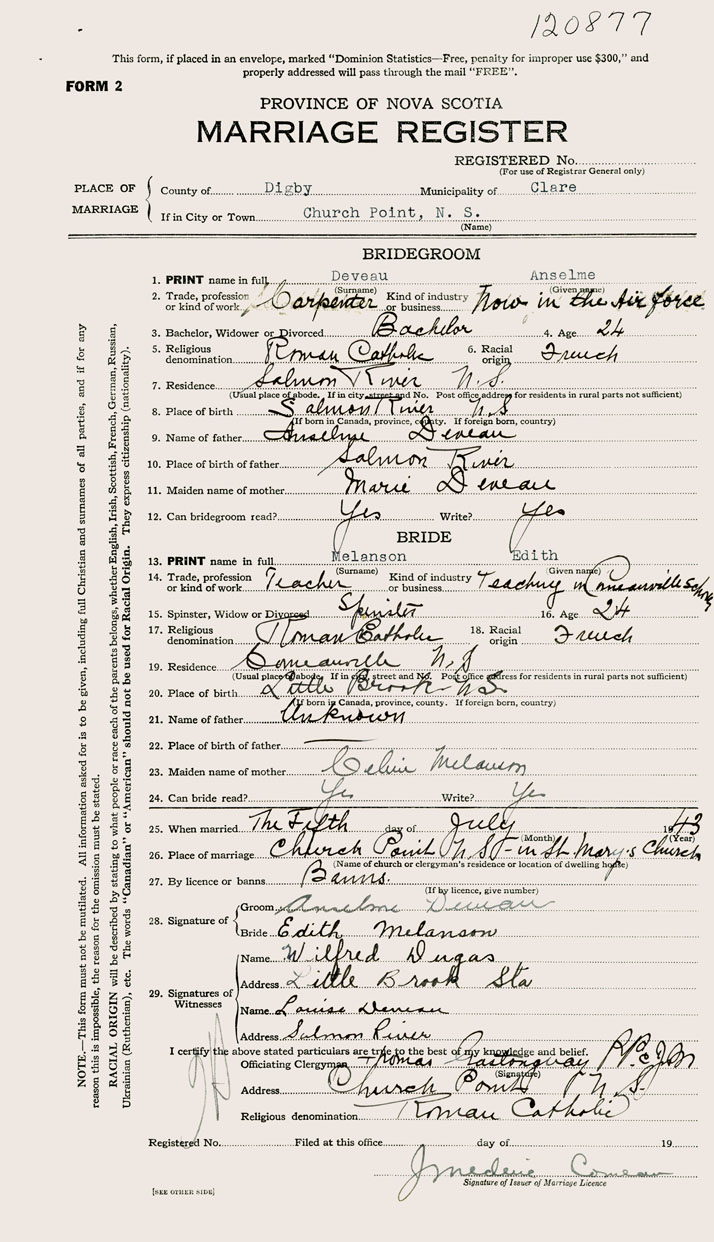 120877
This form, if placed in an envelope, marked "Dominion Statistics—Free, penalty for improper use $300," and
properly addressed will pass through the mail "FREE".
FORM 2
PROVINCE OF NOVA SCOTIA
MARRIAGE REGISTER
REGISTERED No.
(For use of Registrar General only)
PLACE OF MARRIAGE
County of Digby Municipality of Clare
If in City or Town Church Point, N. S.
(Name)
BRIDEGROOM
1. PRINT name in full Deveau Anselme
(Surname) (Given name)
2. Trade, profession or kind of work Carpenter Kind of industry or business Now in the Air force
3. Bachelor, Widower or Divorced Bachelor 4. Age 24
5. Religious denomination Roman Catholic 6. Racial origin French
7. Residence Salmon River N.S.
(Usual place of abode. If in city street and No. Post office address for residents in rural parts not sufficient)
8. Place of birth Salmon River N.S
(If born in Canada, province, county. If foreign born, country)
9. Name of father Anselme Deveau
10. Place of birth of father Salmon River
11. Maiden name of mother Marie Deveau
12. Can bridegroom read? Yes Write? Yes
BRIDE
13. PRINT name in full Melanson Edith
(Surname) (Given name)
14. Trade, profession or kind of work Teacher Kind of industry or business Teaching in Comeauville School
15. Spinster, Widow or Divorced Spinster 16. Age 24
17. Religious denomination Roman Catholic 18. Racial origin French
19. Residence Comeauville N.S
(Usual place of abode. If in city, street and No. Post office address for residents in rural parts not sufficient)
20. Place of birth Little Brook N.S.
(If born in Canada, province, county. If foreign born, country)
21. Name of father Unknown
22. Place of birth of father
23. Maiden name of mother Celine Melanson
24. Can bride read? Yes Write? Yes
25. When married The Fifth day of July 1943
(Month) (Year)
26. Place of marriage Church Point N.S - in St Mary's Church
(Name of church or clergyman's residence or location of dwelling house)
27. By licence or banns Banns.
(If by licence, give number)
28. Signature of
Groom Anselme Deveau
Bride Edith Melanson
29. Signatures of Witnesses
Name Wilfred Dugas
Address Little Brook Sta
Name Louise Deveau
Address Salmon River
I certify the above stated particulars are true to the best of my knowledge and belief.
Officiating Clergyman Thomas Gastonguay
(Signature)
Address Church Point N.S.
Religious denomination Roman Catholic
Registered No. Filed at this office day of 19
Comeau
Signature of Issuer of Marriage Licence
[SEE OTHER SIDE]
NOTE.—This form must not be mutilated. All information asked for is to be given, including full Christian and surnames of all parties, and if for any
reason this is impossible, the reason for the omission must be stated.
RACIAL ORIGIN will be described by stating to what people or race each of the parents belongs, whether English, Irish, Scottish, French, German, Russian,
Ukrainian (Ruthenian), etc. The words "Canadian" or "American" should not be used for Racial Origin. They express citizenship (nationality).